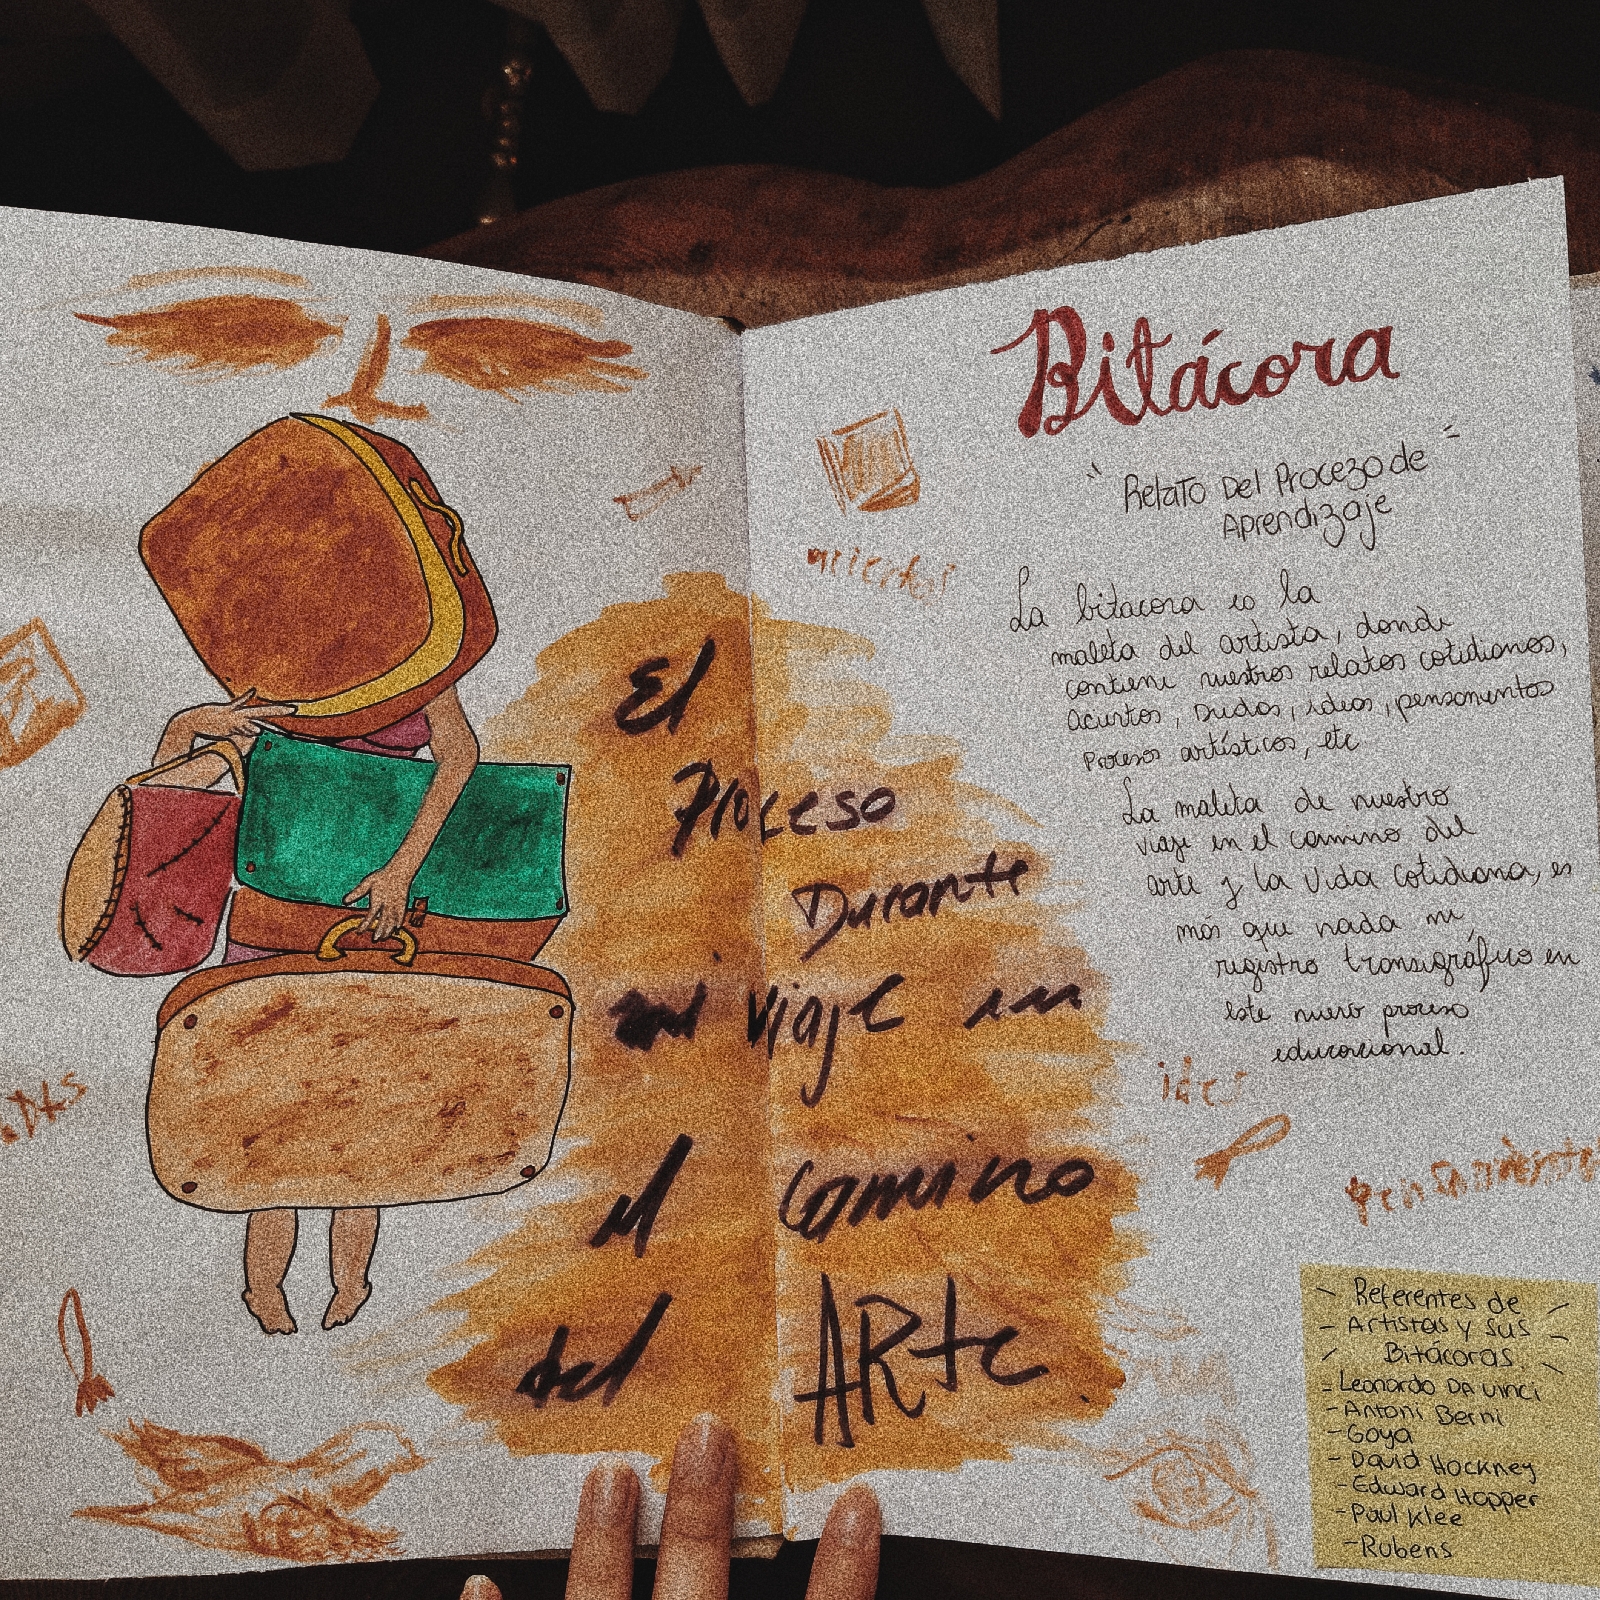 Bitácora
"Relato Del Procezo de
Aprendizaje"
La bitacora es la
maleta del artista, donde
contiene nuestros relatos cotidianos,
aciertos, Dudas, ideas, pensamientos
Procesos artísticos, etc
La maleta de nuestro
viaje en el camino del
arte y la vida cotidiana, es
más que nada mi
registro transigráfico en
este nuevo proceso
educacional.
El
Proceso
Durante
mi viaje en
el Camino
del ARte
ideas
pensamientos
- Referentes de -
- Artistas y sus -
Bitácoras.
- Leonardo DA vinci
- Antoni Berni
- Goya
- David Hockney
- Edward Hopper
- Paul Klee
- Rubens